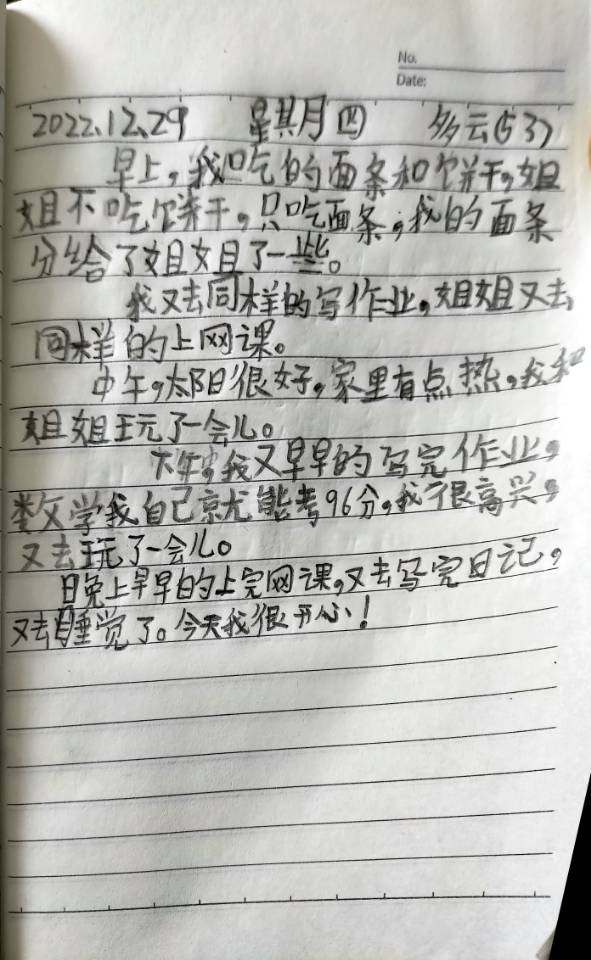 No.
Date:
2022.12.29 星期四 多云(53)
早上，我吃的面条和饼干，姐
姐不吃饼干，只吃面条，我的面条
分给了姐姐了一些。
我又去同样的写作业，姐姐又去
同样的上网课。
中午，太阳很好，家里有点热，我和
姐姐玩了一会儿。
下午，我又早早的写完作业，
数学我自己就能考96分，我很高兴，
又去玩了一会儿。
晚上早早的上完网课，又去写完日记，
又去睡觉了。今天我很开心！